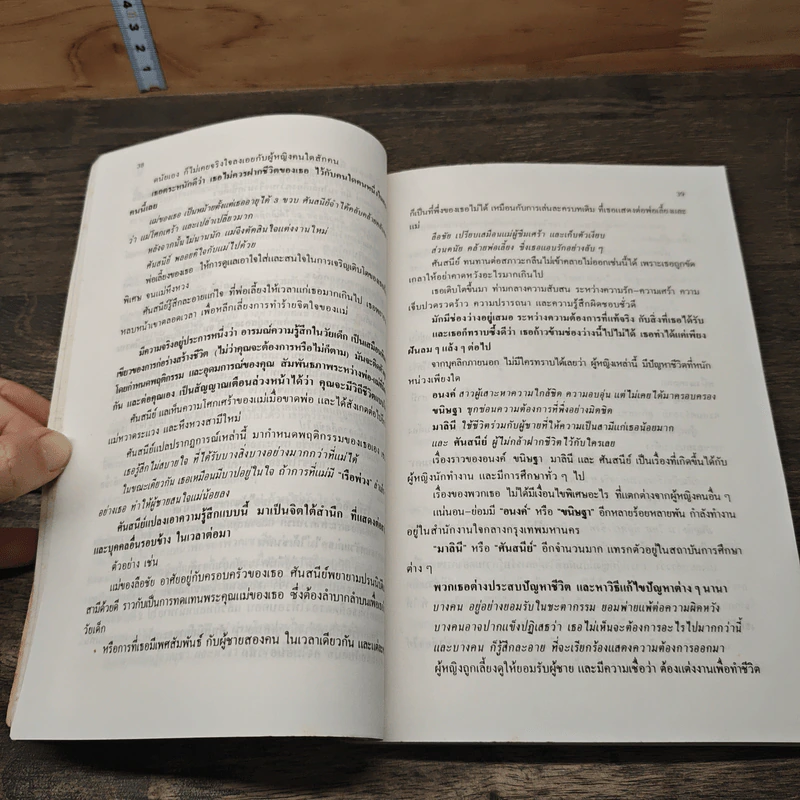 4
3
2
1
38
ดนัยเอง ก็ไม่เคยจริงใจลงเอยกับผู้หญิงคนใดสักคน
เธอตระหนักดีว่า เธอไม่ควรฝากชีวิตของเธอ ไว้กับคนใดคนหนึ่ง
คนนี้เลย
แม่ของเธอ เป็นหม้ายตั้งแต่เธออายุได้ 3 ขวบ ศันสนีย์จำได้
ว่า แม่โศกเศร้า และเปล่าเปลี่ยวมาก
หลังจากนั้นไม่นานนัก แม่จึงตัดสินใจแต่งงานใหม่
ศันสนีย์ พลอยดีใจกับแม่ไปด้วย
พ่อเลี้ยงของเธอ ให้การดูแลเอาใจใส่และสนใจในการเจริญเติบโตของ
พิเศษ จนแม่หึงหวง
ศันสนีย์รู้สึกละอายแก่ใจ ที่พ่อเลี้ยงให้เวลาแก่เธอมากเกินไป
หลบหน้าเขาตลอดเวลา เพื่อหลีกเลี่ยงการทำร้ายจิตใจของแม่
มีความจริงอยู่ประการหนึ่งว่า อารมณ์ความรู้สึกในวัยเด็ก เป็นเสมือน
เขียวของการก่อร่างสร้างชีวิต (ไม่ว่าคุณจะต้องการหรือไม่ก็ตาม) มันจะ
โดยกำหนดพฤติกรรม และอุดมการณ์ของคุณ สัมพันธภาพระหว่าง
กัน และต่อคุณเอง เป็นสัญญาณเตือนล่วงหน้าได้ว่า คุณจะมีวิถีชีวิต
ศันสนีย์ แลเห็นความโศกเศร้าของแม่เมื่อขาดพ่อ และได้สังเกต
แม่หวาดระแวง และหึงหวงสามีใหม่
ศันสนีย์แปลปรากฏการณ์เหล่านี้ มากำหนดพฤติกรรมของเธอเอง
เธอรู้สึกไม่สบายใจ ที่ได้รับบางสิ่งบางอย่างมากกว่าที่แม่ได้
ในขณะเดียวกัน เธอเหมือนมีบาปอยู่ในใจ ถ้าการที่แม่มี "เรือพ่วง"
อย่างเธอ ทำให้ผู้ชายสนใจแม่น้อยลง
ศันสนีย์แปลงเอาความรู้สึกแบบนี้ มาเป็นจิตใต้สำนึก ที่แสดง
และบุคคลอื่นรอบข้าง ในเวลาต่อมา
ตัวอย่าง เช่น
แม่ของลือชัย อาศัยอยู่กับครอบครัวของเธอ ศันสนีย์พยายาม
สามีด้วยดี ราวกับเป็นการทดแทนพระคุณแม่ของเธอ ซึ่งต้องลำบากลำบน
วัยเด็ก
หรือการที่เธอมีเพศสัมพันธ์ กับผู้ชายสองคน ในเวลาเดียวกัน และ
39
ก็เป็นที่พึ่งของเธอไม่ได้ เหมือนกับการเล่นละครบทเดิม ที่เธอแสดงต่อพ่อเลี้ยงและ
แม่
ลือชัย เปรียบเสมือนแม่ผู้ซึมเศร้า และเก็บตัวเงียบ
ส่วนดนัย คล้ายพ่อเลี้ยง ซึ่งเธอแอบรักอย่างลับ ๆ
ศันสนีย์ ทนทานต่อสภาวะกลืนไม่เข้าคายไม่ออกเช่นนี้ได้ เพราะเธอถูกขัด
เกลาให้อย่าคาดหวังอะไรมากเกินไป
เธอเติบโตขึ้นมา ท่ามกลางความสับสน ระหว่างความรัก–ความเศร้า ความ
เจ็บปวดรวดร้าว ความปรารถนา และความรู้สึกผิดชอบชั่วดี
มักมีช่องว่างอยู่เสมอ ระหว่างความต้องการที่แท้จริง กับสิ่งที่เธอได้รับ
และเธอก็ทราบซึ้งดีว่า เธอก้าวข้ามช่องว่างนี้ไปไม่ได้ เธอทำได้แค่เพียง
ฝันลม ๆ แล้ง ๆ ต่อไป
จากบุคลิกภายนอก ไม่มีใครทราบได้เลยว่า ผู้หญิงเหล่านี้ มีปัญหาชีวิตที่หนัก
หน่วงเพียงใด
อนงค์ สาวผู้เสาะหาความใกล้ชิด ความอบอุ่น แต่ไม่เคยได้มาครอบครอง
ขนิษฐา ซุกซ่อนความต้องการที่พึ่งอย่างมิดชิด
มาลินี ใช้ชีวิตร่วมกับผู้ชายที่ให้ความเป็นสามีแก่เธอน้อยมาก
และ ศันสนีย์ ผู้ไม่กล้าฝากชีวิตไว้กับใครเลย
เรื่องราวของอนงค์ ขนิษฐา มาลินี และ ศันสนีย์ เป็นเรื่องที่เกิดขึ้นได้กับ
ผู้หญิงนักทำงาน และมีการศึกษาทั่ว ๆ ไป
เรื่องของพวกเธอ ไม่ได้มีเงื่อนไขพิเศษอะไร ที่แตกต่างจากผู้หญิงคนอื่น ๆ
แน่นอน–ย่อมมี "อนงค์" หรือ "ขนิษฐา" อีกหลายร้อยหลายพัน กำลังทำงาน
อยู่ในสำนักงานใจกลางกรุงเทพมหานคร
"มาลินี" หรือ "ศันสนีย์" อีกจำนวนมาก แทรกตัวอยู่ในสถาบันการศึกษา
ต่าง ๆ
พวกเธอต่างประสบปัญหาชีวิต และหาวิธีแก้ไขปัญหาต่าง ๆ นานา
บางคน อยู่อย่างยอมรับในชะตากรรม ยอมพ่ายแพ้ต่อความผิดหวัง
บางคนอาจปากแข็งปฏิเสธว่า เธอไม่เห็นจะต้องการอะไรไปมากกว่านี้
และบางคน ก็รู้สึกละอาย ที่จะเรียกร้องแสดงความต้องการออกมา
ผู้หญิงถูกเลี้ยงดูให้ยอมรับผู้ชาย และมีความเชื่อว่า ต้องแต่งงานเพื่อทำชีวิต